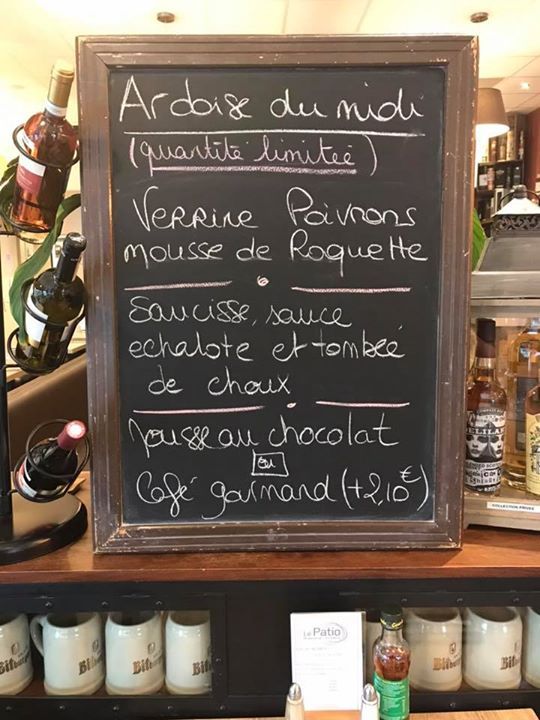 Ardoise du midi
(quantité limitée)
Verrine Poivrons
mousse de Roquette
Saucisse, sauce
echalote et tombée
de choux
Mousse au chocolat
ou
Café gourmand (+2,10€)
Le Patio
COLLECTION PRIVEE